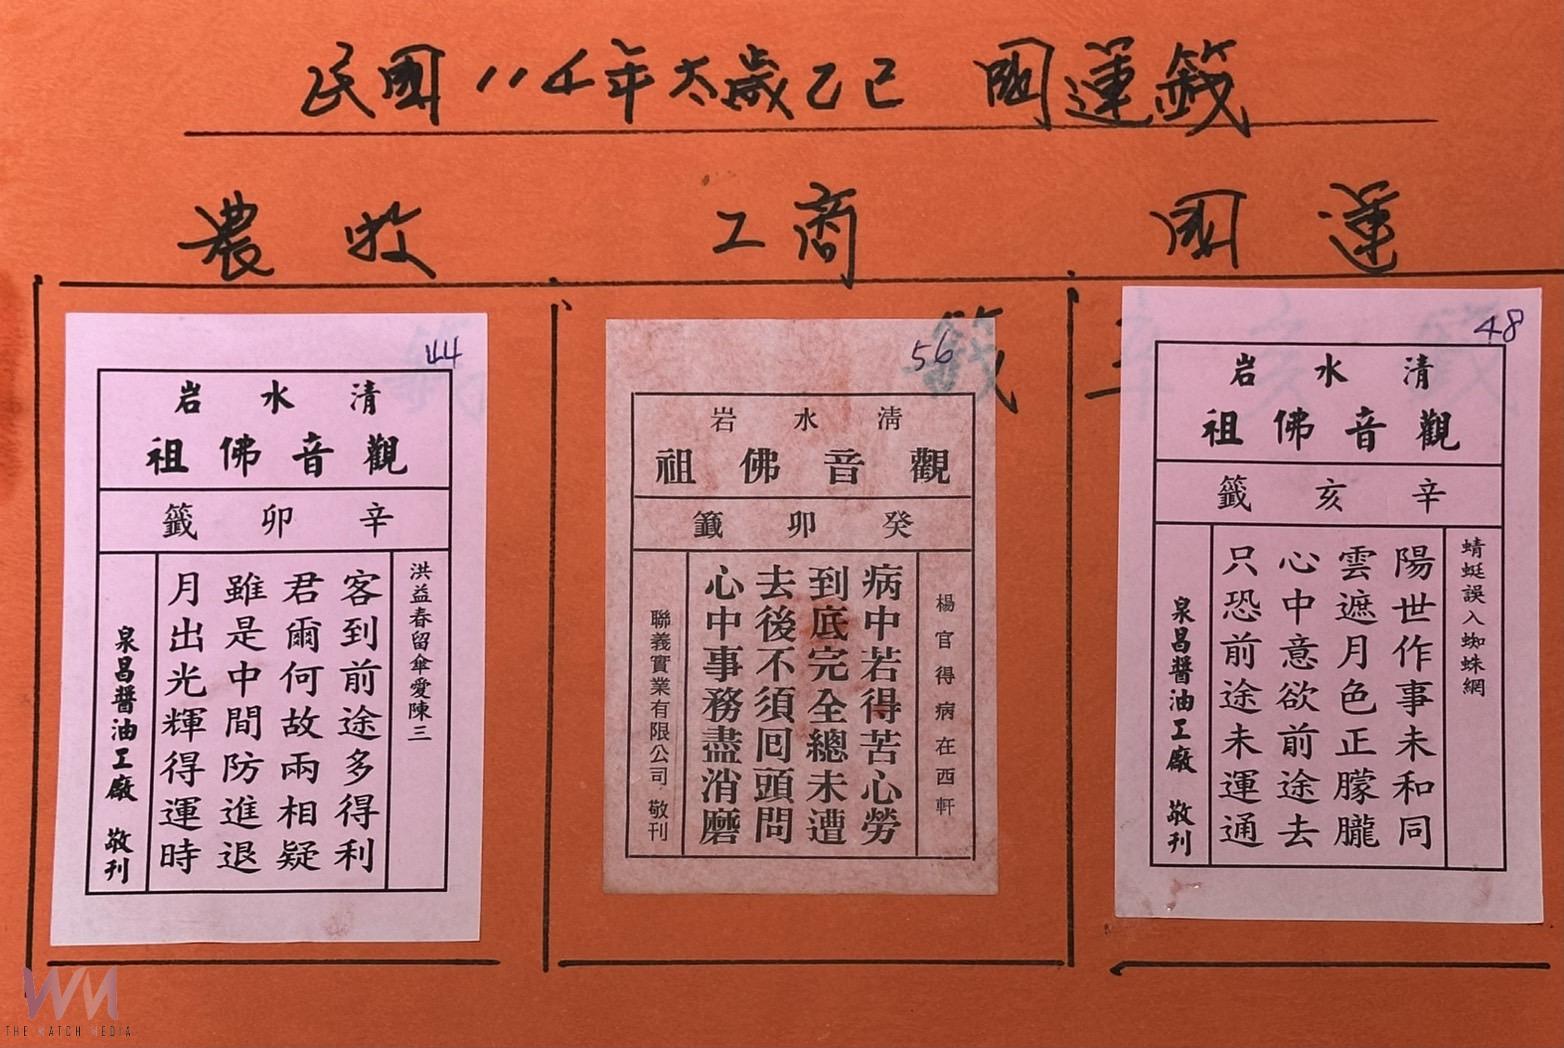 民國114年太歲乙巳 國運籤
國運
工商
農牧
48
清水岩
觀音佛祖
辛亥籤
蜻蜓誤入蜘蛛網
陽世作事未和同
雲遮月色正朦朧
心中意欲前途去
只恐前途未運通
泉昌醬油工廠 敬刊
56
清水岩
觀音佛祖
癸卯籤
楊官得病在西軒
病中若得苦心勞
到底完全總未遭
去後不須囘頭問
心中事務盡消磨
聯義實業有限公司 敬刊
44
清水岩
觀音佛祖
辛卯籤
洪益春留傘愛陳三
客到前途多得利
君爾何故兩相疑
雖是中間防進退
月出光輝得運時
泉昌醬油工廠 敬刊
WM
THE WATCH MEDIA